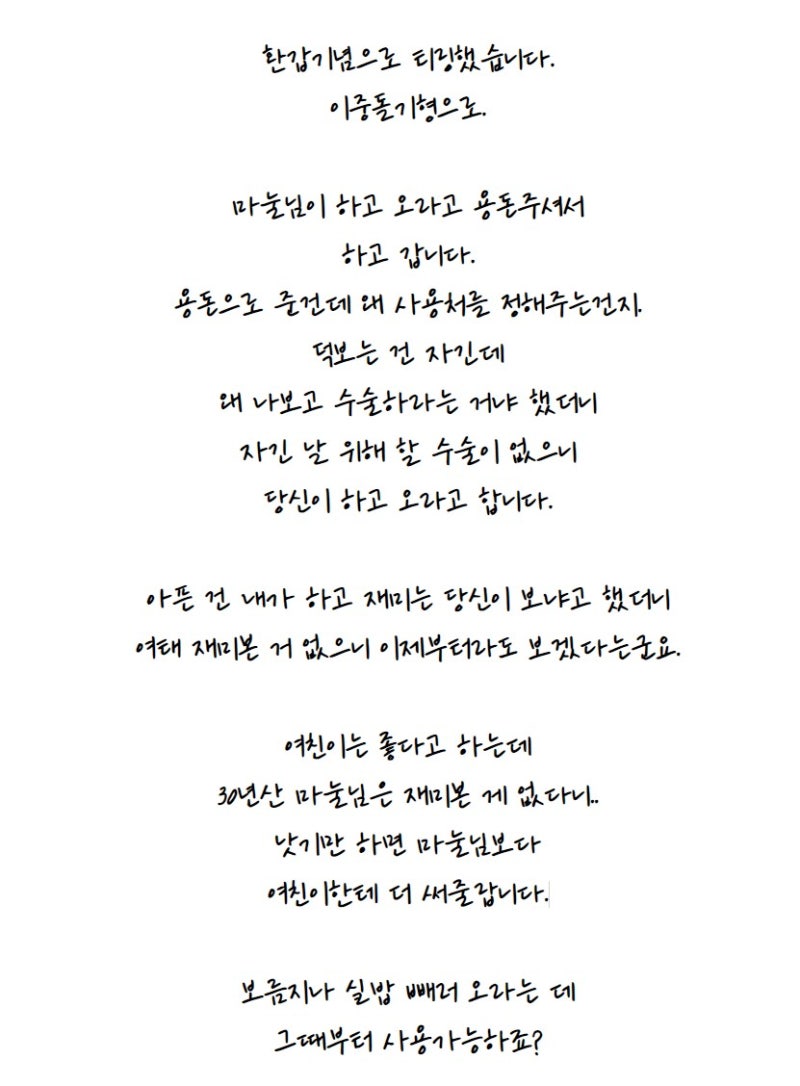 환갑기념으로 티링했습니다.
이중돌기형으로.
마눌님이 하고 오라고 용돈주셔서
하고 갑니다.
용돈으로 준건데 왜 사용처를 정해주는건지.
덕보는 건 자긴데
왜 나보고 수술하라는 거냐 했더니
자긴 날 위해 할 수술이 없으니
당신이 하고 오라고 합니다.
아픈 건 내가 하고 재미는 당신이 보냐고 했더니
여태 재미본 거 없으니 이제부터라도 보겠다는군요.
여친이는 좋다고 하는데
30년산 마눌님은 재미본 게 없다니..
낫기만 하면 마눌님보다
여친이한테 더 써줄랍니다.
보름지나 실밥 빼러 오라는 데
그때부터 사용가능하죠?